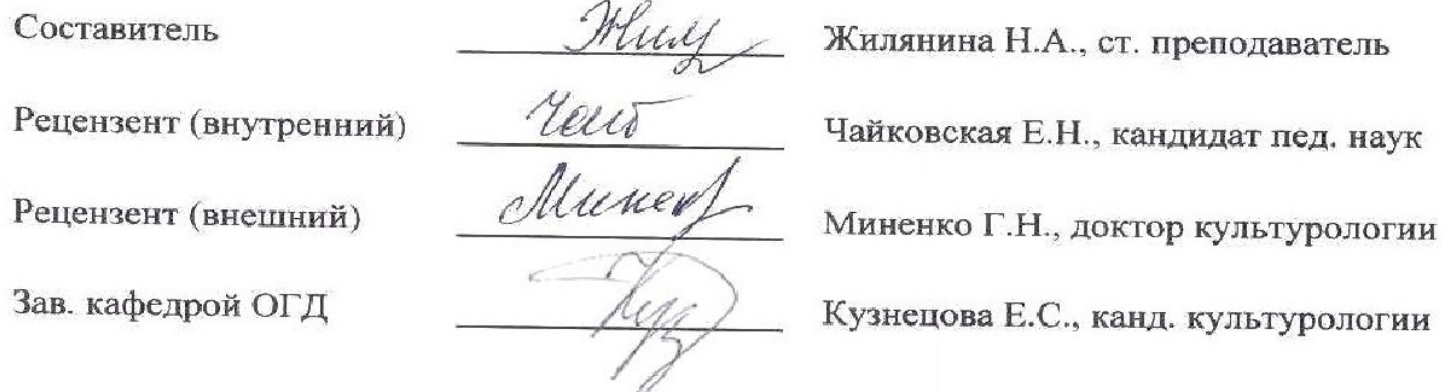 Составитель Жил Жилянина Н.А., ст. преподаватель
Рецензент (внутренний) Чай Чайковская Е.Н., кандидат пед. наук
Рецензент (внешний) Минен Миненко Г.Н., доктор культурологии
Зав. кафедрой ОГД Куз Кузнецова Е.С., канд. культурологии